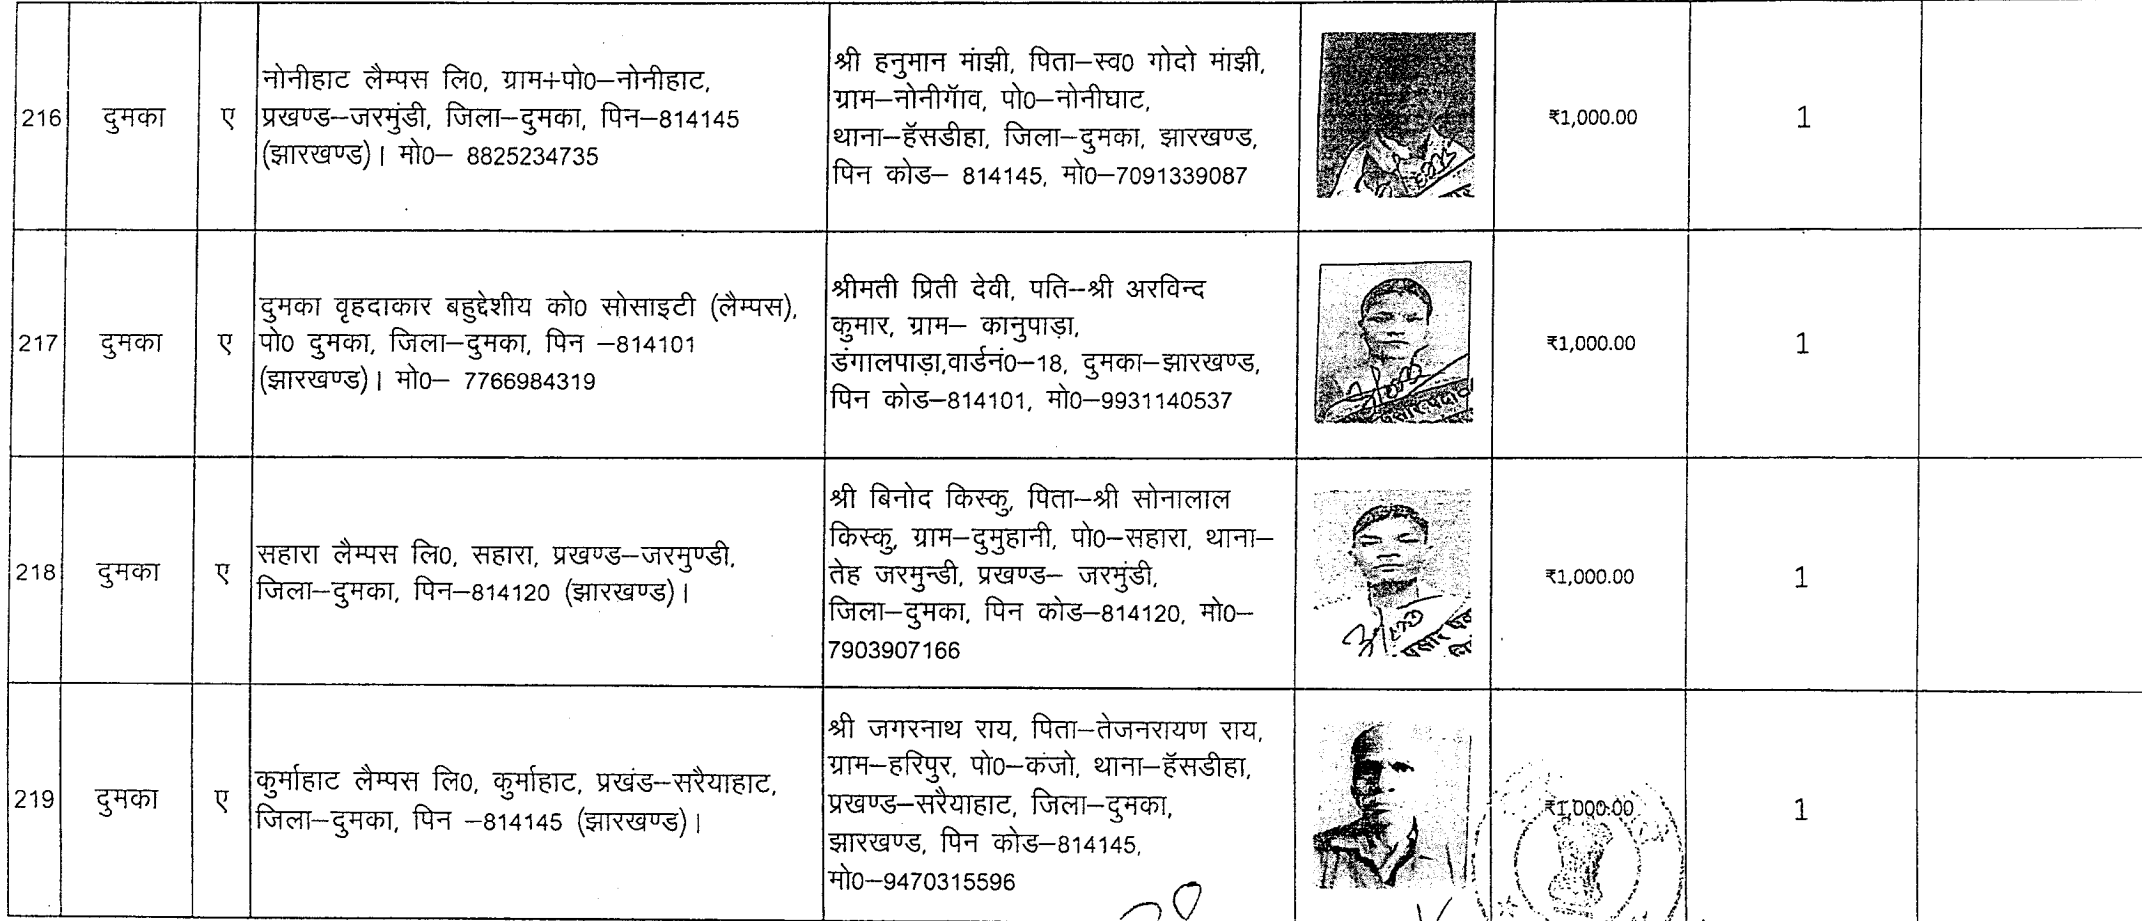 216
दुमका
ए
नोनीहाट लैम्पस लि0, ग्राम+पो0–नोनीहाट,
प्रखण्ड–जरमुंडी, जिला–दुमका, पिन–814145
(झारखण्ड)। मो0– 8825234735
श्री हनुमान मांझी, पिता–स्व0 गोदो मांझी,
ग्राम–नोनीगॅाव, पो0–नोनीघाट,
थाना–हॅसडीहा, जिला–दुमका, झारखण्ड,
पिन कोड– 814145, मो0–7091339087
₹1,000.00
1
217
दुमका
ए
दुमका वृहदाकार बहुद्देशीय को0 सोसाइटी (लैम्पस),
पो0 दुमका, जिला–दुमका, पिन –814101
(झारखण्ड)। मो0– 7766984319
श्रीमती प्रिती देवी, पति–श्री अरविन्द
कुमार, ग्राम– कानुपाड़ा,
डंगालपाड़ा,वार्डनं0–18, दुमका–झारखण्ड,
पिन कोड–814101, मो0–9931140537
₹1,000.00
1
218
दुमका
ए
सहारा लैम्पस लि0, सहारा, प्रखण्ड–जरमुण्डी,
जिला–दुमका, पिन–814120 (झारखण्ड)।
श्री बिनोद किस्कु, पिता–श्री सोनालाल
किस्कु, ग्राम–दुमुहानी, पो0–सहारा, थाना–
तेह जरमुन्डी, प्रखण्ड– जरमुंडी,
जिला–दुमका, पिन कोड–814120, मो0–
7903907166
₹1,000.00
1
219
दुमका
ए
कुर्माहाट लैम्पस लि0, कुर्माहाट, प्रखंड–सरैयाहाट,
जिला–दुमका, पिन –814145 (झारखण्ड)।
श्री जगरनाथ राय, पिता–तेजनरायण राय,
ग्राम–हरिपुर, पो0–कंजो, थाना–हॅसडीहा,
प्रखण्ड–सरैयाहाट, जिला–दुमका,
झारखण्ड, पिन कोड–814145,
मो0–9470315596
₹1,000.00
1